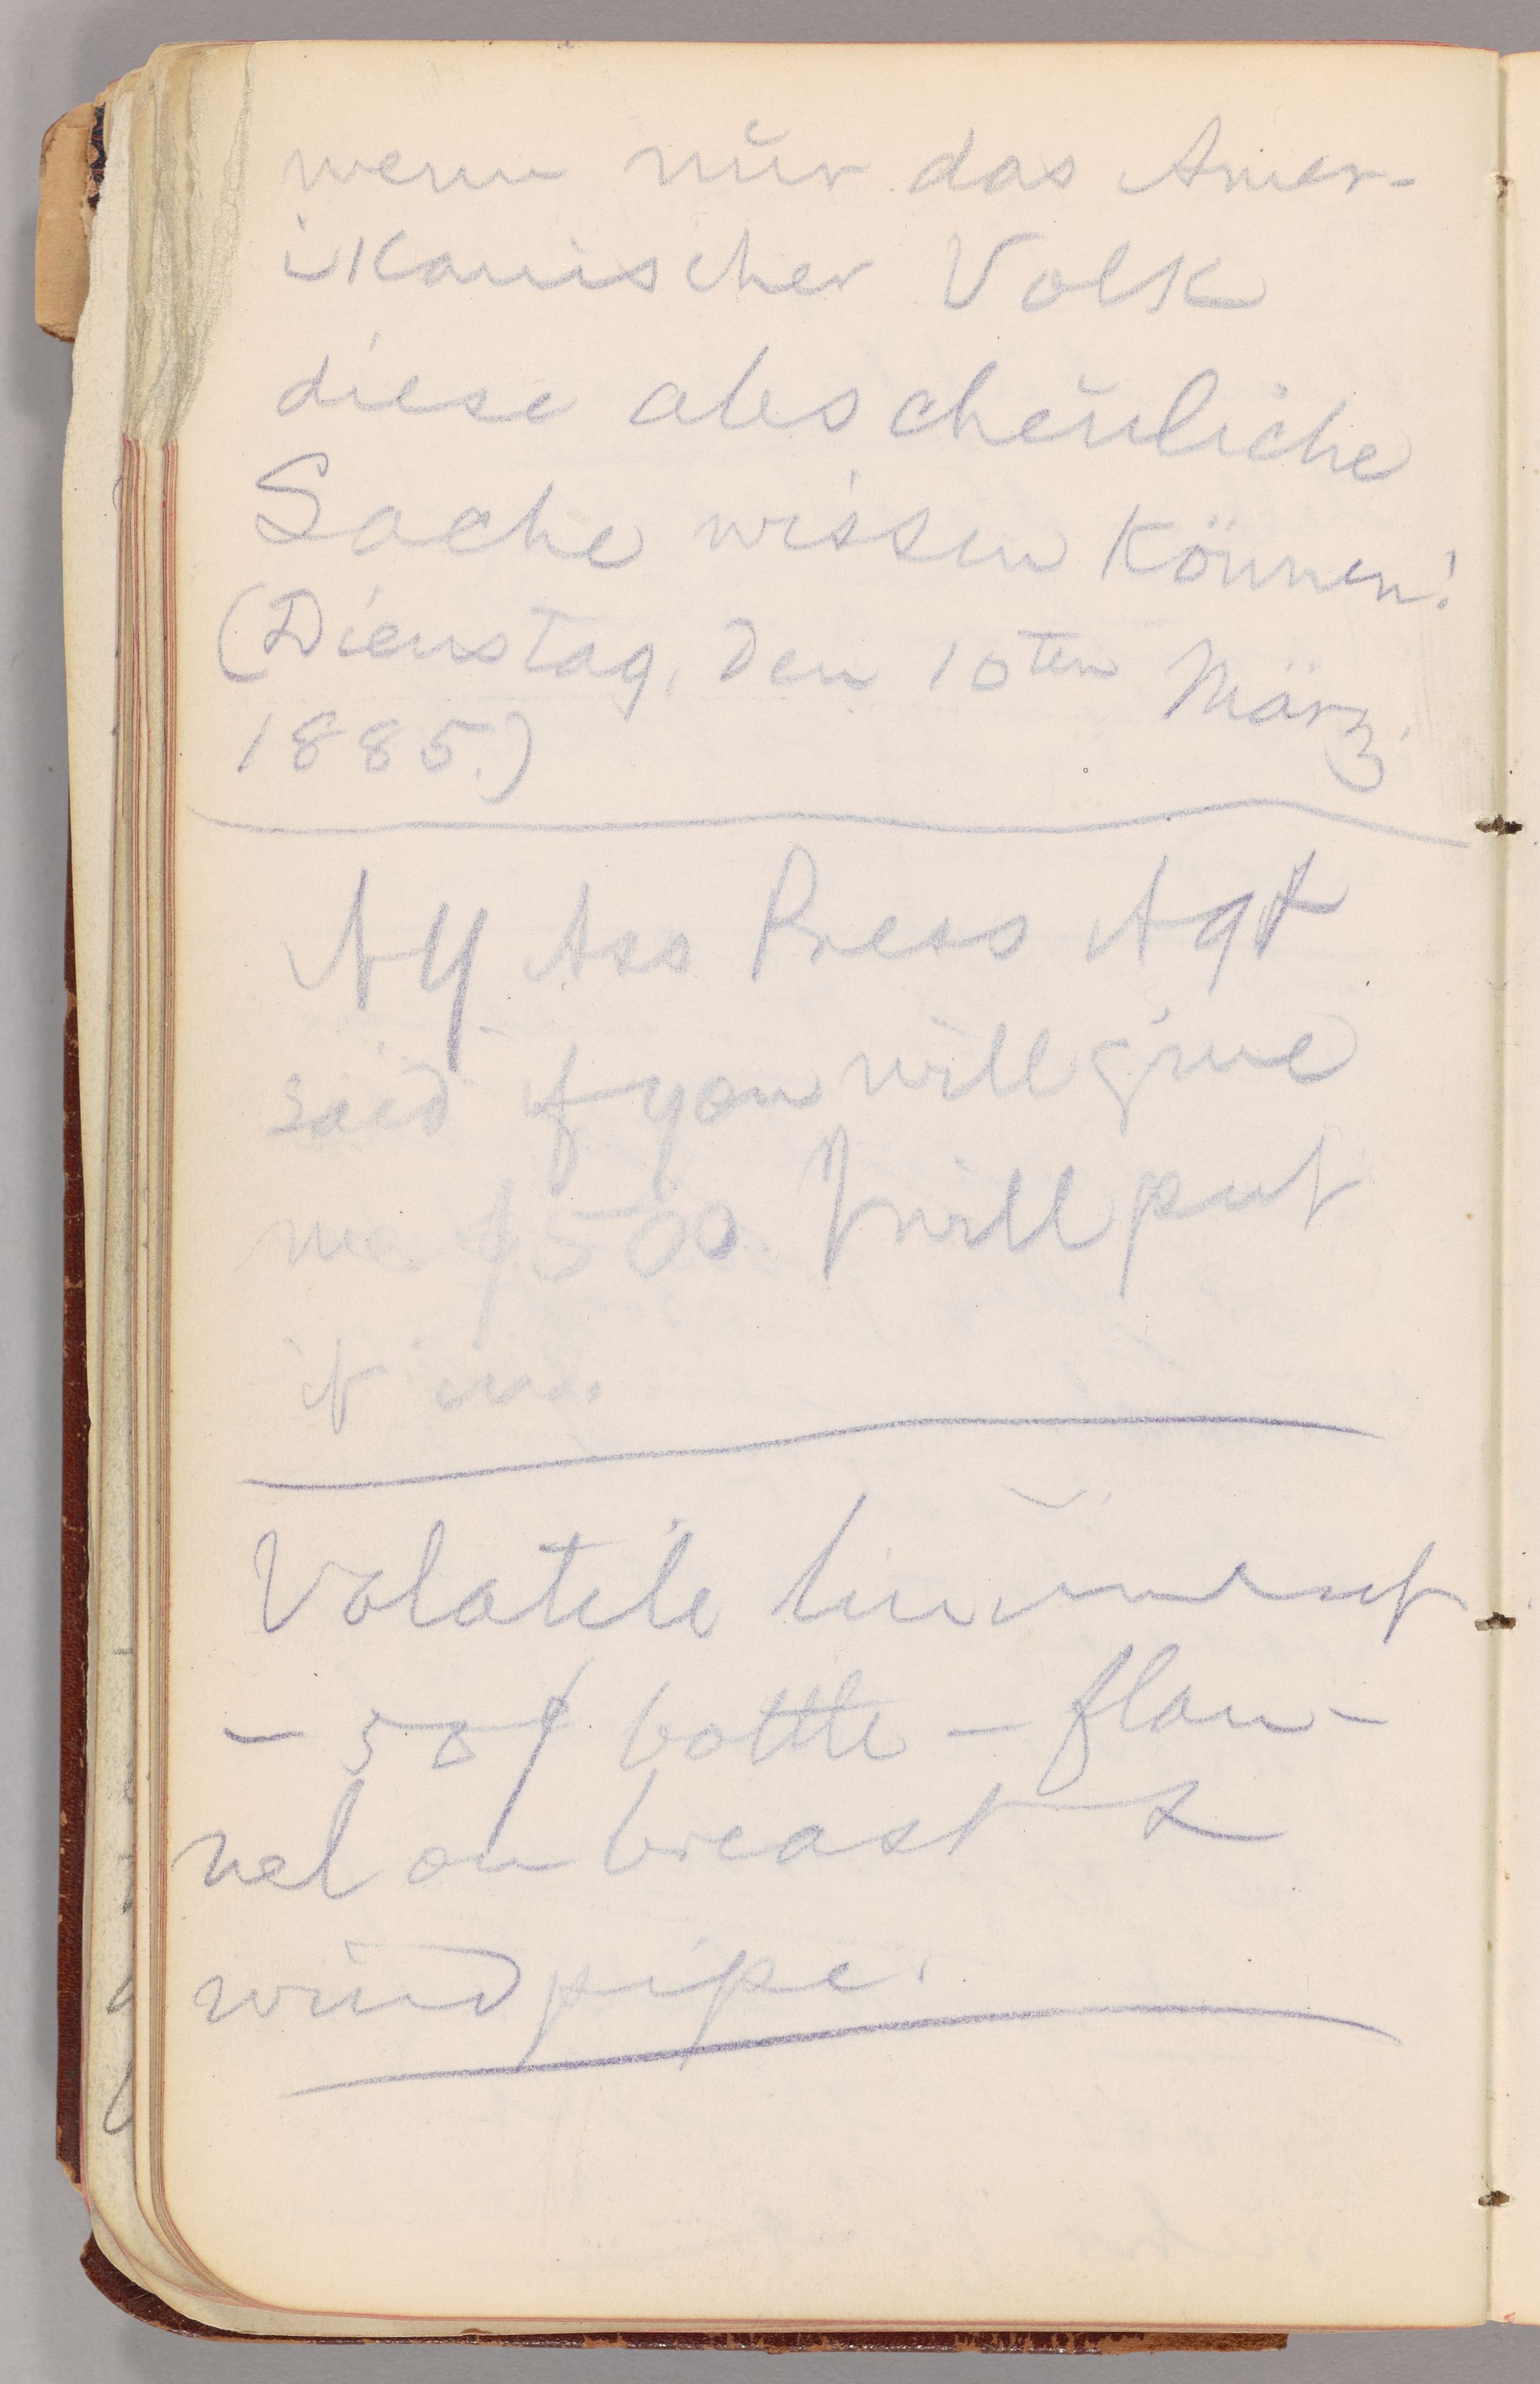 wenn nŭr das Amer-
ikanischer Volk
diese abscheŭliche
Sache wissen können!
(Dienstag, den 10ten März.
1885.)
Ass Press Agt
said if you will give
me $500 I will put
it in.
Volatile liniment
- 50¢ bottle - flan-
nel on breast &
windpipe.